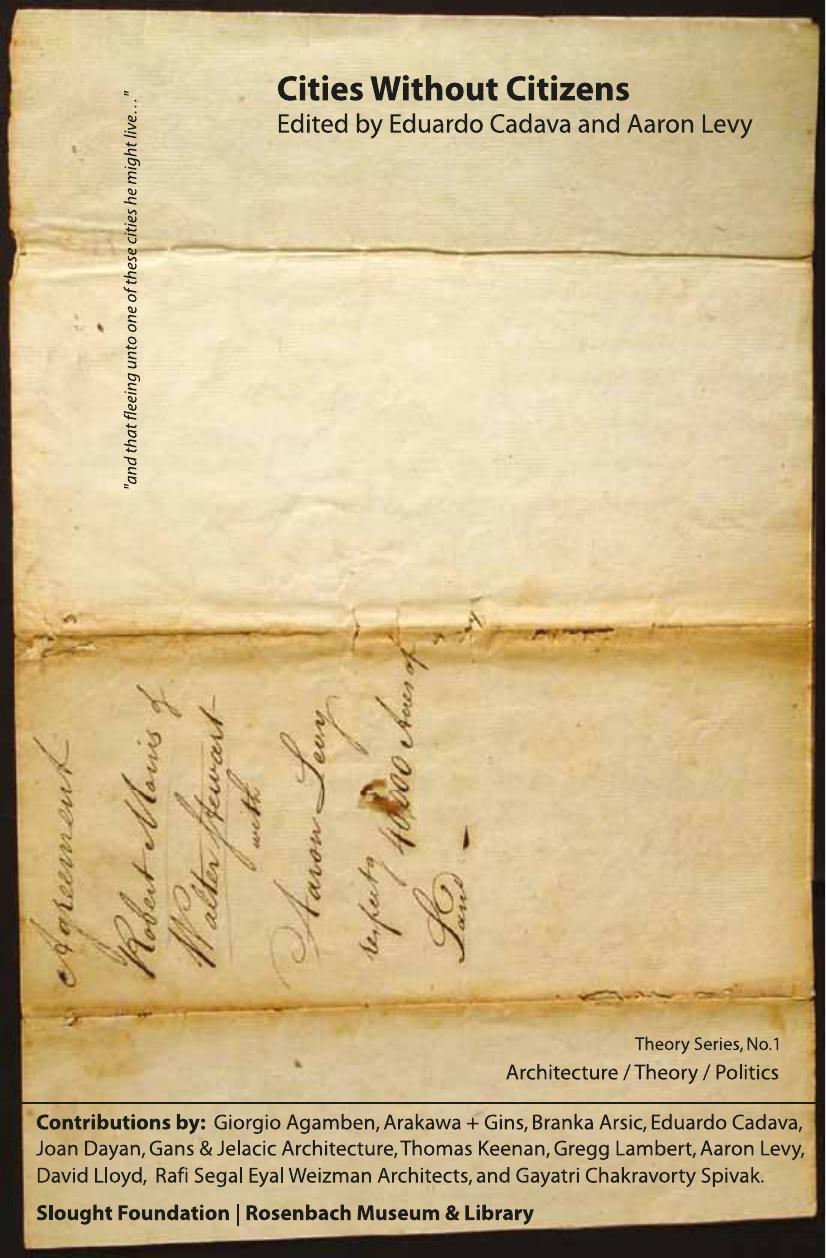 Cities Without Citizens
Edited by Eduardo Cadava and Aaron Levy
"and that fleeing unto one of these cities he might live..."
Agreement
Robert Morris &
Walter Stewart
with
Aaron Levy
40,000 Acres of
Land
Theory Series, No.1
Architecture / Theory / Politics
Contributions by: Giorgio Agamben, Arakawa + Gins, Branka Arsic, Eduardo Cadava,
Joan Dayan, Gans & Jelacic Architecture, Thomas Keenan, Gregg Lambert, Aaron Levy,
David Lloyd, Rafi Segal Eyal Weizman Architects, and Gayatri Chakravorty Spivak.
Slought Foundation | Rosenbach Museum & Library